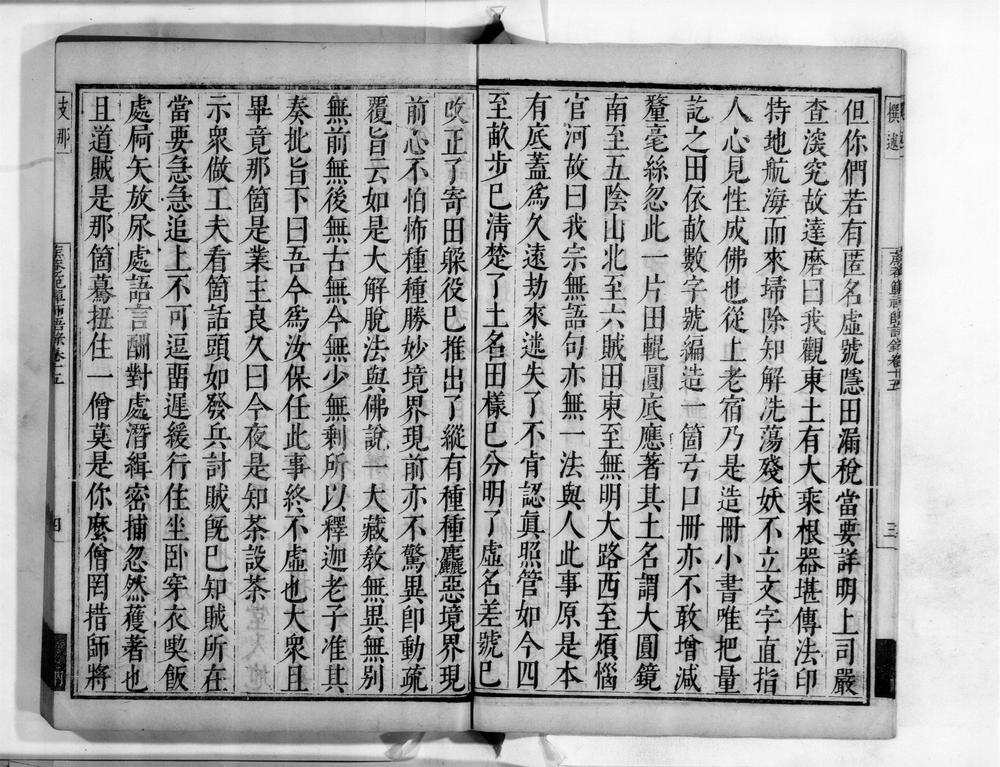 但你們若有匿名虛號隱田漏稅當要詳明上司嚴
查深究故達磨曰我觀東土有大乘根器堪傳法印
特地航海而來埽除知解洗蕩殘妖不立文字直指
人心見性成佛也從上老宿乃是造冊小書唯把量
訖之田依畝數字號編造一箇号口冊亦不敢增減
釐毫絲忽此一片田輥圓底應著其土名謂大圓鏡
南至五陰山北至六賊田東至無明大路西至煩惱
官河故曰我宗無語句亦無一法與人此事原是本
有底蓋為久遠劫來迷失了不肯認真照管如今四
至畝步已清楚了土名田樣已分明了虛名差號已
改正了寄田躲役已推出了縱有種種麤惡境界現
前心不怕怖種種勝妙境界現前亦不驚異即動疏
覆旨云如是大解脫法與佛說一大藏教無異無別
無前無後無古無今無少無剩所以釋迦老子准其
奏批旨下曰吾今為汝保任此事終不虛也大眾且
畢竟那箇是業主良久曰今夜是知茶設茶
示眾做工夫看箇話頭如發兵討賊既已知賊所在
當要急急追上不可逗畱遲緩行住坐卧穿衣喫飯
處屙矢放尿處語言酬對處潛緝密捕忽然獲著也
且道賊是那箇驀扭住一僧莫是你麼僧罔措師將
支那
撰述
語錄卷十五
三
四